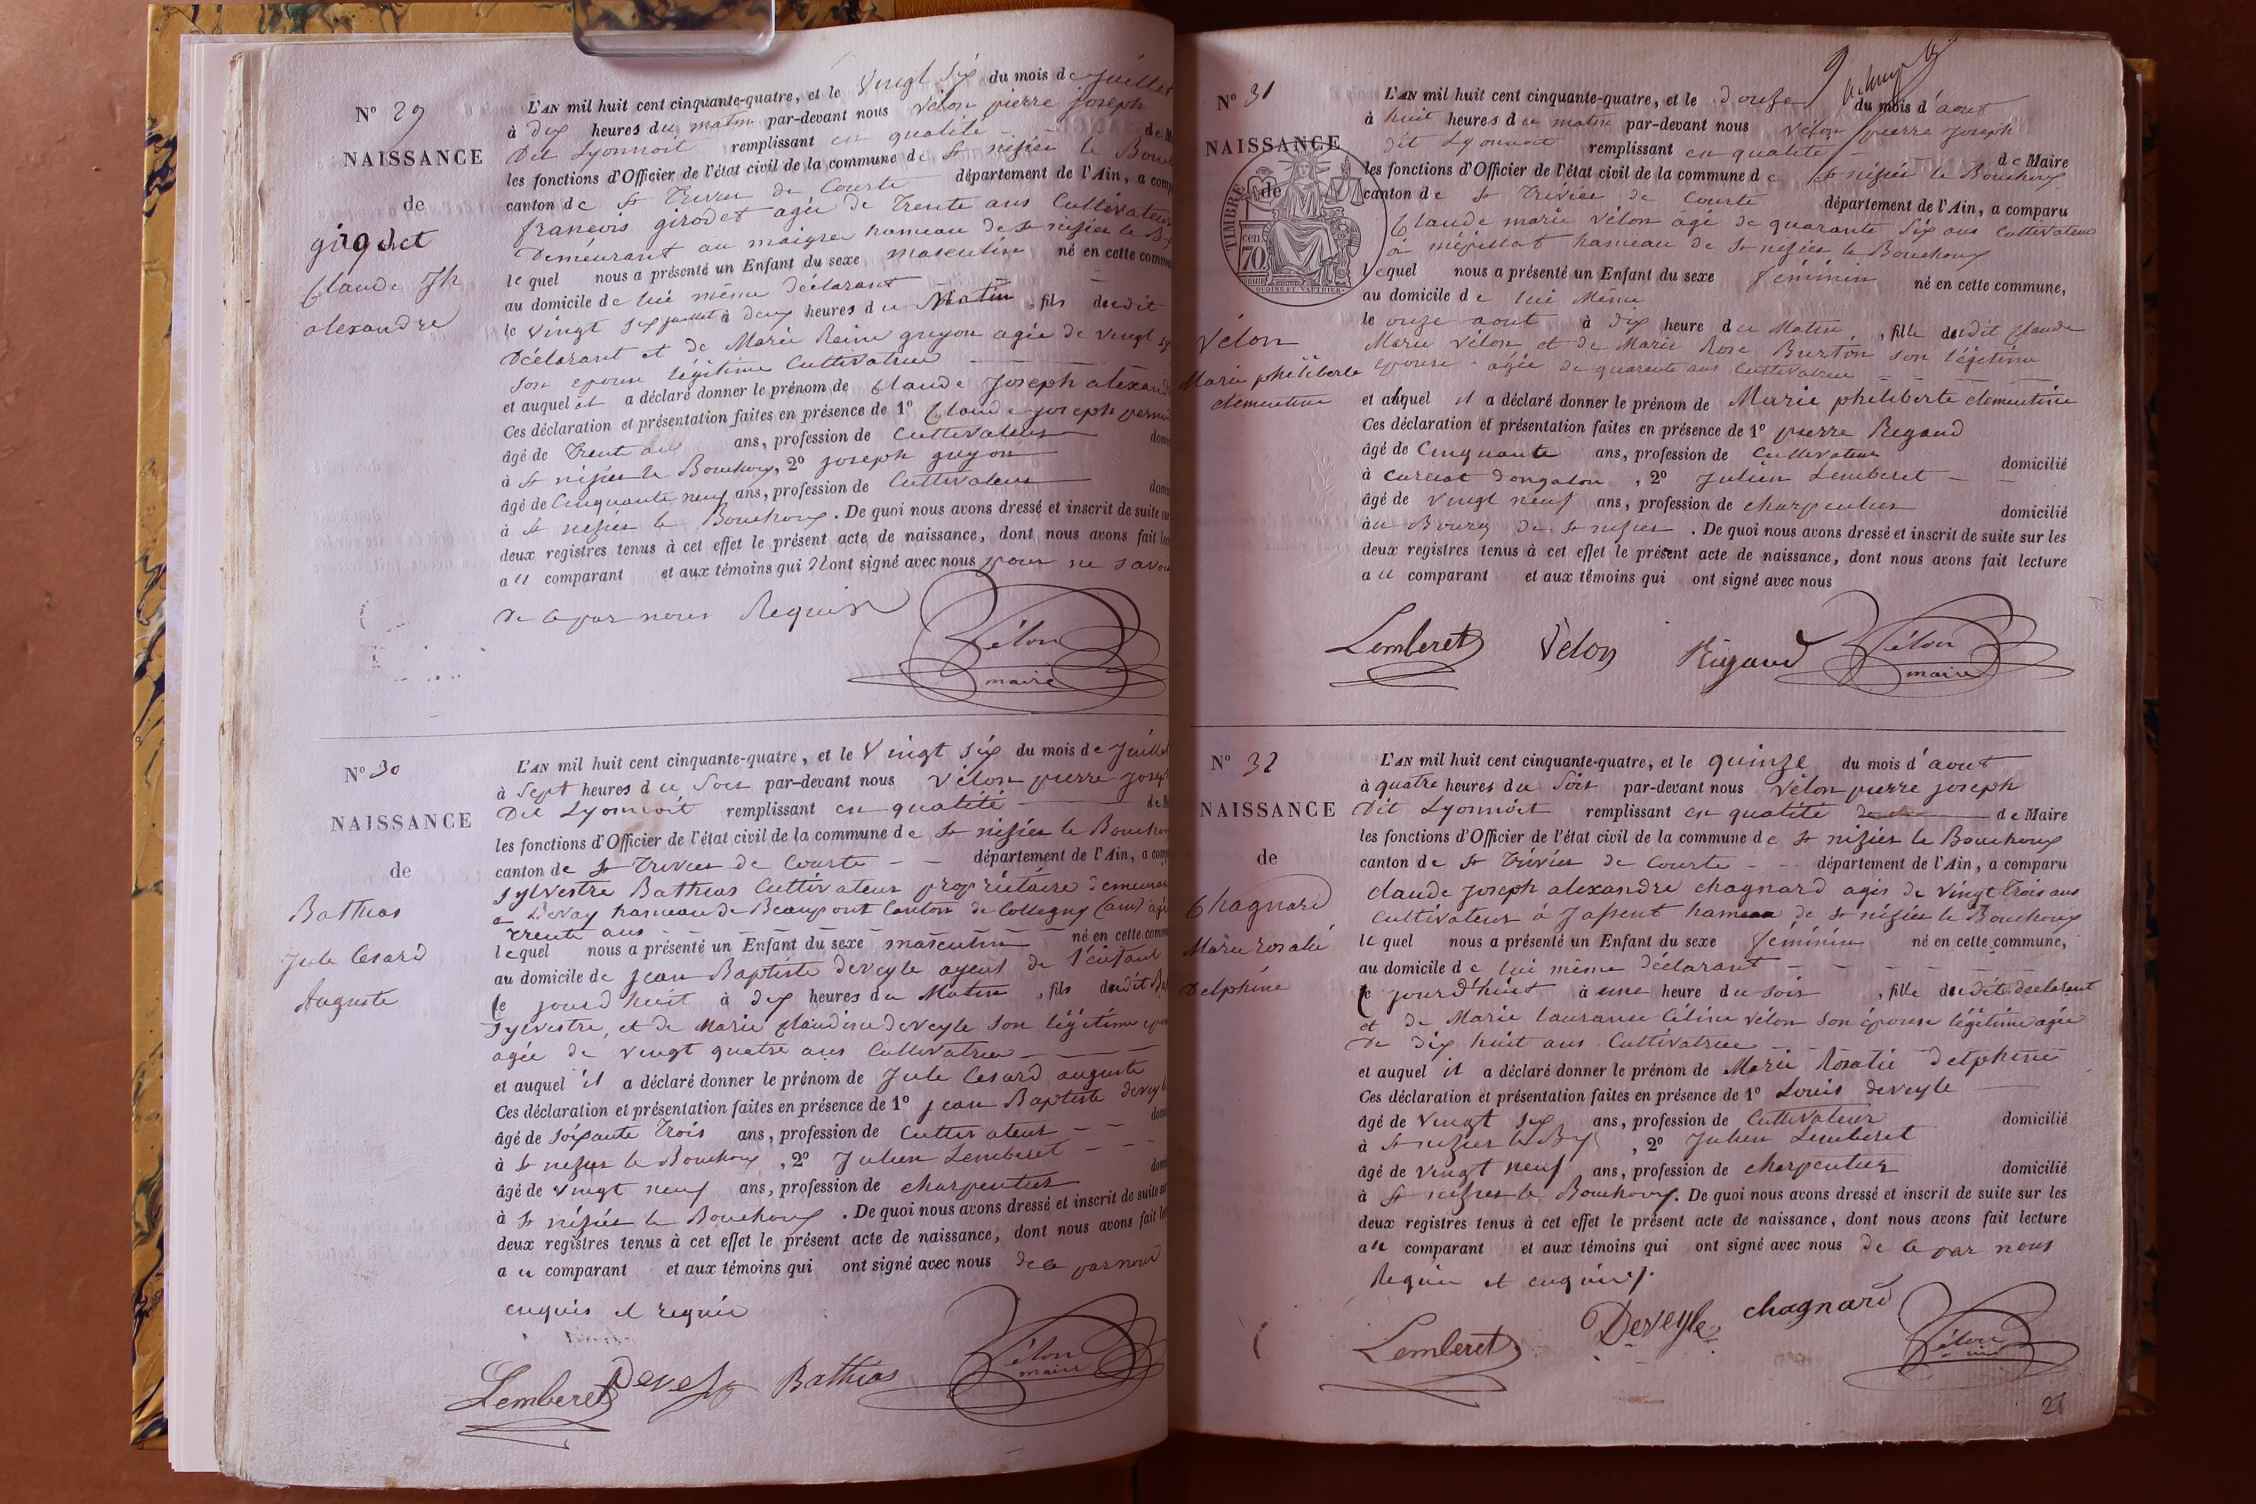 N° 29
NAISSANCE
de
girodet
Claude Jh
alexandre
L'AN mil huit cent cinquante-quatre, et le vingt six du mois de juillet
à dix heures du matin par-devant nous vélon pierre joseph
Dit Lyonnoit remplissant en qualité de
les fonctions d'Officier de l'état civil de la commune de St nizier le
canton de St Trivier de Courte département de l'Ain, a
francois girodet agée de Trente ans Cultivateur
Demeurant au maigre hameau de St nizier le
lequel nous a présenté un Enfant du sexe masculin né en cette
au domicile de lui même déclarant
le vingt six juillet à deux heures du Matin, fils dudit
Déclarant et de Marie Reine guyon agée de vingt
son epouse légitime Cultivatrice
et auquel il a déclaré donner le prénom de Claude Joseph
Ces déclaration et présentation faites en présence de 1° Claude joseph
âgé de Trente ans, profession de Cultivateur
à St nizier le Bouchoux, 2° joseph guyon
âgé de Cinquante neuf ans, profession de Cultivateur
à St nizier le Bouchoux. De quoi nous avons dressé et inscrit de suite
deux registres tenus à cet effet le présent acte de naissance, dont nous avons fait
au comparant et aux témoins qui ont signé avec nous pour ne
de ce par nous Requis
Vélon
maire
N° 30
NAISSANCE
de
Bathias
Jule Cesard
Auguste
L'AN mil huit cent cinquante-quatre, et le Vingt six du mois de
à Sept heures du Soir par-devant nous vélon pierre
Dit Lyonnoit remplissant en qualité de
les fonctions d'Officier de l'état civil de la commune de St nizier le
canton de St Trivier de Courte département de l'Ain, a
Sylvestre Bathias Cultivateur propriétaire
a hameau de Beaupont Canton de Collegny
Trente ans
lequel nous a présenté un Enfant du sexe masculin né en cette
au domicile de Jean Baptiste deveyle ayeul de l'enfant
le jourd'huit à dix heures du Matin, fils dudit
Sylvestre, et de Marie Claudine deveyle son légitime
agée de vingt quatre ans Cultivatrice
et auquel il a déclaré donner le prénom de Jule Cesard auguste
Ces déclaration et présentation faites en présence de 1° jean Baptiste
âgé de soixante Trois ans, profession de Cultivateur
à St nizier le Bouchoux, 2° Julien Lemberet
âgé de vingt neuf ans, profession de charpentier
à St nizier le Bouchoux. De quoi nous avons dressé et inscrit de suite
deux registres tenus à cet effet le présent acte de naissance, dont nous avons fait
au comparant et aux témoins qui ont signé avec nous de ce par nous
enquis et requis
Lemberet Bathias Vélon
maire
N° 31
NAISSANCE
de
TIMBRE
cen. 70
Vélon
Marie philiberte
clementine
L'AN mil huit cent cinquante-quatre, et le douze du mois d'aout
à huit heures du matin par-devant nous vélon pierre joseph
dit Lyonnoit remplissant en qualité de Maire
les fonctions d'Officier de l'état civil de la commune de St nizier le Bouchoux
canton de St Trivier de Courte département de l'Ain, a comparu
Claude marie vélon agé de quarante six ans Cultivateur
à hameau de St nizier le Bouchoux
lequel nous a présenté un Enfant du sexe féminin né en cette commune,
au domicile de lui Même
le onze aout à dix heure du Matin, fille dudit Claude
Marie vélon et de Marie Rose Burton son légitime
epouse agée de quarante ans Cultivatrice
et auquel il a déclaré donner le prénom de Marie philiberte clementine
Ces déclaration et présentation faites en présence de 1° pierre Regaud
âgé de Cinquante ans, profession de Cultivateur domicilié
à curciat dongalon, 2° Julien Lemberet
âgé de vingt neuf ans, profession de charpentier domicilié
au Bourg de St nizier. De quoi nous avons dressé et inscrit de suite sur les
deux registres tenus à cet effet le présent acte de naissance, dont nous avons fait lecture
au comparant et aux témoins qui ont signé avec nous
Lemberet Velon Rigaud Vélon
maire
N° 32
NAISSANCE
de
Chagnard
Marie rosalie
Delphine
L'AN mil huit cent cinquante-quatre, et le quinze du mois d'aout
à quatre heures du Soir par-devant nous vélon pierre joseph
Dit Lyonnoit remplissant en qualité de Maire
les fonctions d'Officier de l'état civil de la commune de St nizier le Bouchoux
canton de St Trivier de Courte département de l'Ain, a comparu
claude joseph alexandre chagnard agés de vingt Trois ans
Cultivateur à hameau de St nizier le Bouchoux
lequel nous a présenté un Enfant du sexe féminin né en cette commune,
au domicile de lui même déclarant
le jourd'huit à une heure du soir, fille dudit déclarant
et de Marie Laurance Céline vélon son épouse légitime agée
de dix huit ans Cultivatrice
et auquel il a déclaré donner le prénom de Marie Rosalie delphine
Ces déclaration et présentation faites en présence de 1° Louis deveyle
âgé de vingt six ans, profession de Cultivateur domicilié
à St nizier le Bx, 2° Julien Lemberet
âgé de vingt neuf ans, profession de charpentier domicilié
à St nizier le Bouchoux. De quoi nous avons dressé et inscrit de suite sur les
deux registres tenus à cet effet le présent acte de naissance, dont nous avons fait lecture
au comparant et aux témoins qui ont signé avec nous de ce par nous
Requis et enquis
Lemberet Deveyle chagnard Vélon
28